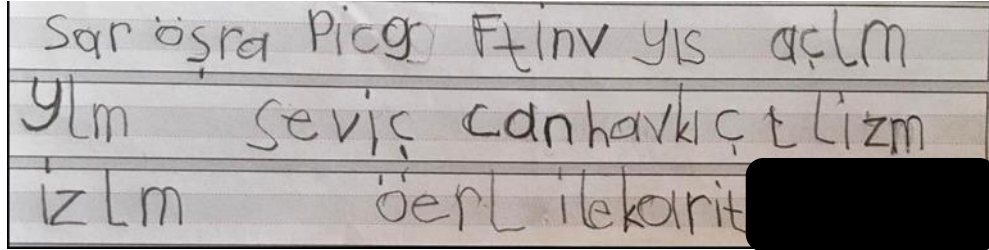 Sar öşra Picg Ftinv yıs açlm
ylm seviç canhavkıçt lizm
izlm öerl ilekarit